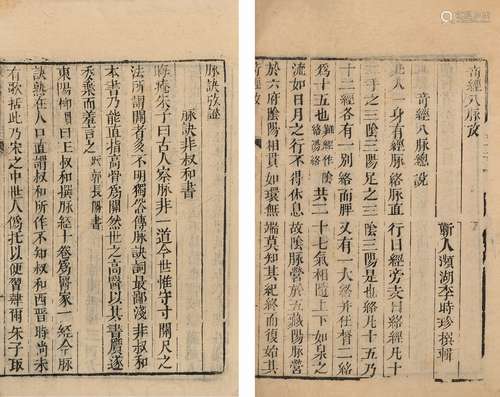 奇經八脉攷
蘄人瀕湖李時珍撰輯
奇經八脉總說
凡人一身有經脉絡脉直行曰經旁支曰絡經凡十
二手之三陰三陽足之三陰三陽是也絡凡十五乃
十二經各有一別絡而脾又有一大絡并任督二絡
爲十五也難經作陰絡陽絡共二十七氣相隨上下如泉之
流如日月之行不得休息故陰脉營於五臟陽脉營
於六府陰陽相貫如環無端莫知其紀終而復始其
奇經攷
脉訣攷證
脉訣非叔和書
晦庵朱子曰古人察脉非一道今世惟守寸關尺之
法所謂關者多不明獨俗傳脉訣詞最鄙淺非叔和
本書乃能直指高骨爲關然世之高醫以其書贗遂
委棄而羞言之跋郭長陽書
東陽柳貫曰王叔和撰脉經十卷爲醫家一經今脉
訣熟在人口直謂叔和所作不知叔和西晉時尚未
有歌括此乃宋之中世人僞托以便習肄爾朱子取